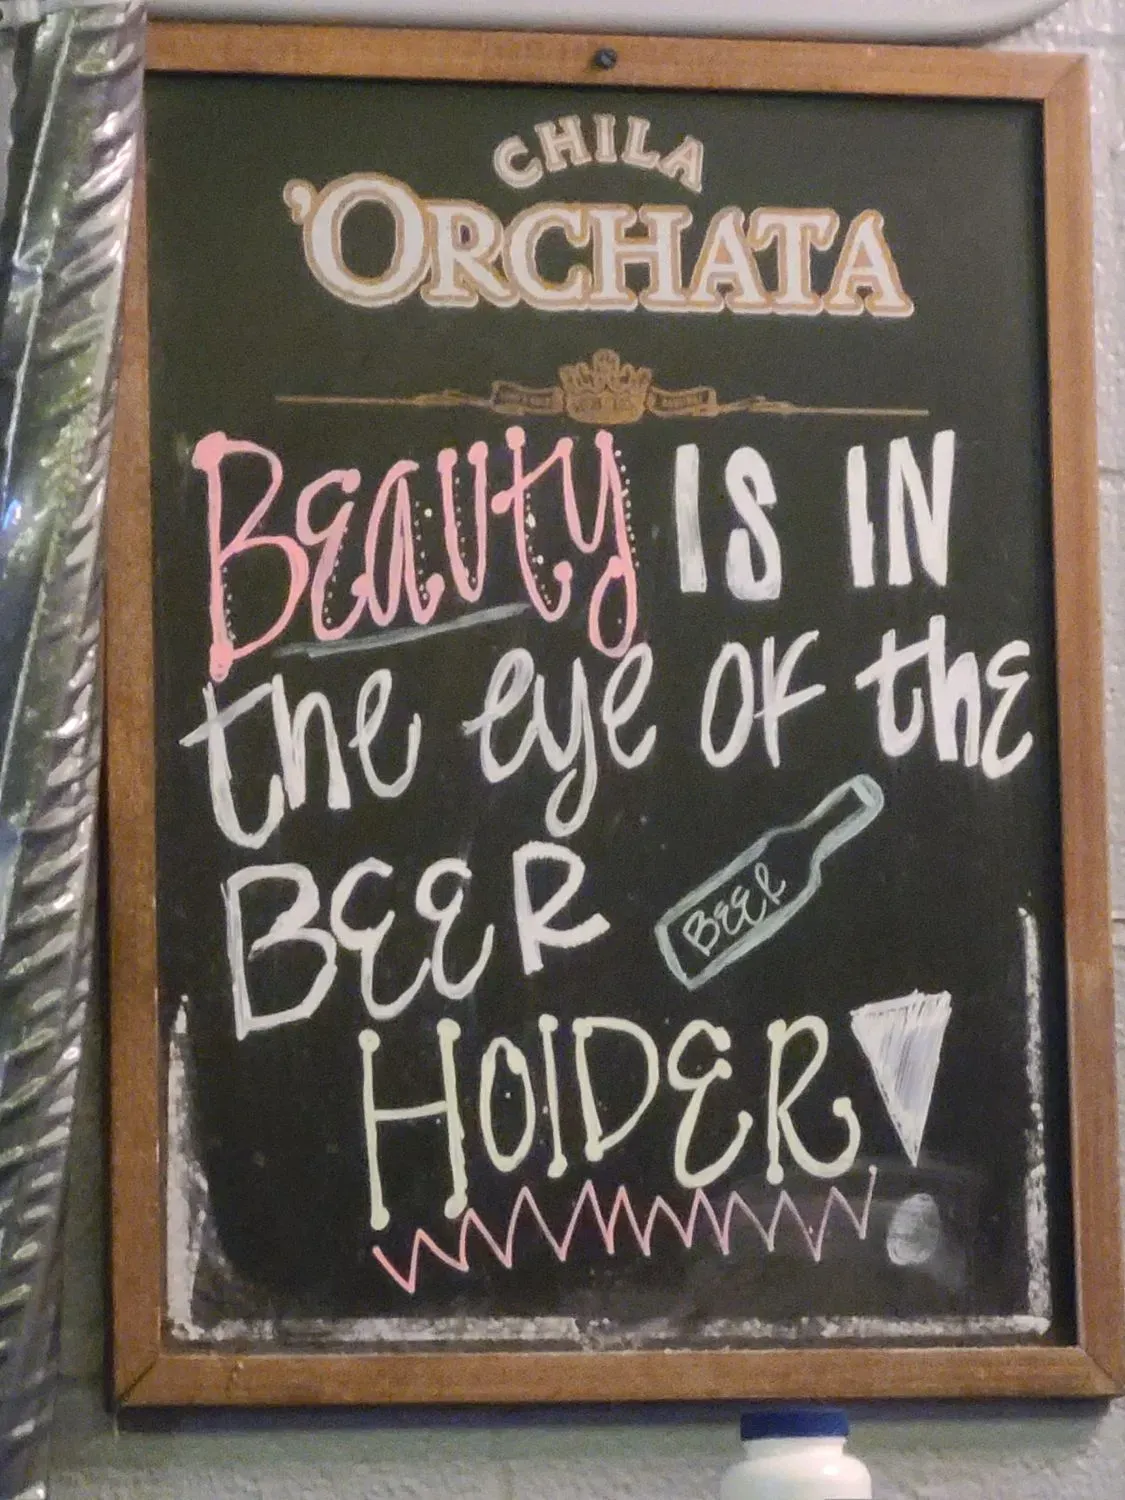 CHILA
'ORCHATA
Beauty IS IN
the eye of the
BEER
BEER
HOlDER!